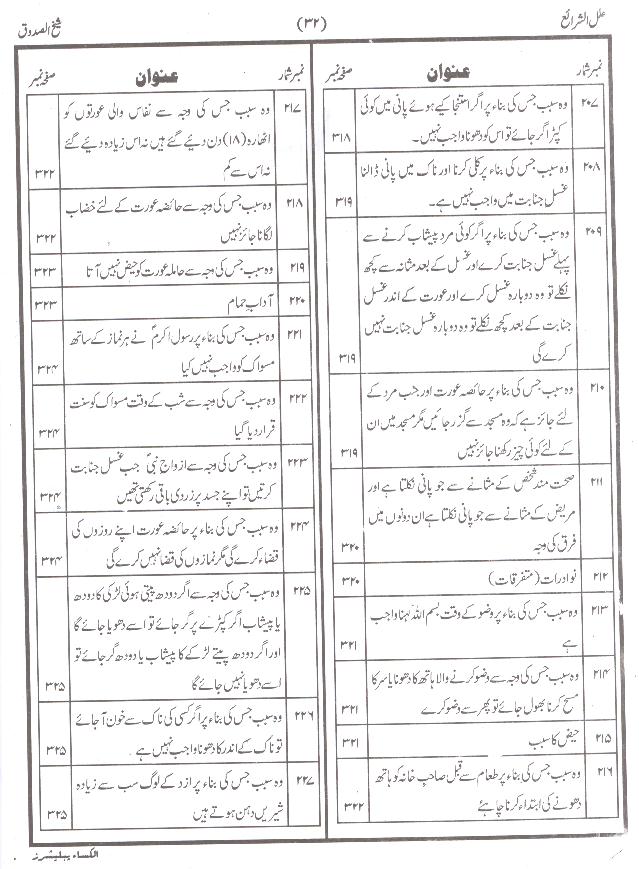 علل الشرائع
(۳۲)
شیخ الصدوق
نمبر شمار
عنوان
صفحہ نمبر
۲۰۷
وہ سبب جس کی بناء پر اگر استنجا کیے ہوئے پانی میں کوئی
کپڑا گر جائے تو اس کو دھونا واجب نہیں۔
۳۱۸
۲۰۸
وہ سبب جس کی بناء پر کلی کرنا اور ناک میں پانی ڈالنا
غسل جنابت میں واجب نہیں ہے۔
۳۱۹
۲۰۹
وہ سبب جس کی بناء پر اگر کوئی مرد پیشاب کرنے سے
پہلے غسل جنابت کرے اور غسل کے بعد مثانہ سے کچھ
نکلے تو وہ دوبارہ غسل کرے اور عورت کے اندر غسل
جنابت کے بعد کچھ نکلے تو وہ دوبارہ غسل جنابت نہیں
کرے گی
۳۱۹
۲۱۰
وہ سبب جس کی بناء پر حائضہ عورت اور جنب مرد کے
لئے جائز ہے کہ وہ مسجد سے گزر جائیں مگر مسجد میں ان
کے لئے کوئی چیز رکھنا جائز نہیں
۳۱۹
۲۱۱
صحت مند شخص کے مثانے سے جو پانی نکلتا ہے اور
مریض کے مثانے سے جو پانی نکلتا ہے ان دونوں میں
فرق کی وجہ
۳۲۰
۲۱۲
نوادرات (متفرقات)
۳۲۰
۲۱۳
وہ سبب جس کی بناء پر وضو کے وقت بسم اللہ کہنا واجب
ہے
۳۲۱
۲۱۴
وہ سبب جس کی وجہ سے وضو کرنے والا ہاتھ کا دھونا یا سر کا
مسح کرنا بھول جائے تو پھر سے وضو کرے
۳۲۱
۲۱۵
حیض کا سبب
۳۲۱
۲۱۶
وہ سبب جس کی بناء پر طعام سے قبل صاحب خانہ کو ہاتھ
دھونے کی ابتداء کرنا چاہئے
۳۲۲
نمبر شمار
عنوان
صفحہ نمبر
۲۱۷
وہ سبب جس کی وجہ سے نفاس والی عورتوں کو
اٹھارہ (۱۸) دن دیئے گئے ہیں نہ اس زیادہ دیئے گئے
نہ اس سے کم
۳۲۲
۲۱۸
وہ سبب جس کی وجہ سے حائضہ عورت کے لئے خضاب
لگانا جائز نہیں
۳۲۲
۲۱۹
وہ سبب جس کی وجہ سے حاملہ عورت کو حیض نہیں آتا
۳۲۳
۲۲۰
آداب حمام
۳۲۳
۲۲۱
وہ سبب جس کی بناء پر رسول اکرمؐ نے ہر نماز کے ساتھ
مسواک کو واجب نہیں کیا
۳۲۴
۲۲۲
وہ سبب جس کی وجہ سے شب کے وقت مسواک کو سنت
قرار دیا گیا
۳۲۴
۲۲۳
وہ سبب جس کی وجہ سے ازواج نبیؐ جب غسل جنابت
کرتیں تو اپنے جسد پر زردی باقی رکھتی تھیں
۳۲۴
۲۲۴
وہ سبب جس کی بناء پر حائضہ عورت اپنے روزوں کی
قضاء کرے گی مگر نمازوں کی قضا نہیں کرے گی
۳۲۴
۲۲۵
وہ سبب جس کی وجہ سے اگر دودھ پیتی ہوئی لڑکی کا دودھ
یا پیشاب اگر کپڑے پر گر جائے تو اسے دھویا جائے گا
اور اگر دودھ پیتے لڑکے کا پیشاب یا دودھ گر جائے تو
اسے دھویا نہیں جائے گا
۳۲۵
۲۲۶
وہ سبب جس کی بناء پر اگر کسی کی ناک سے خون آ جائے
تو ناک کے اندر کا دھونا واجب نہیں ہے
۳۲۵
۲۲۷
وہ سبب جس کی بناء پر ازد کے لوگ سب سے زیادہ
شیریں دہن ہوتے ہیں
۳۲۵
الکساء پبلیشرز